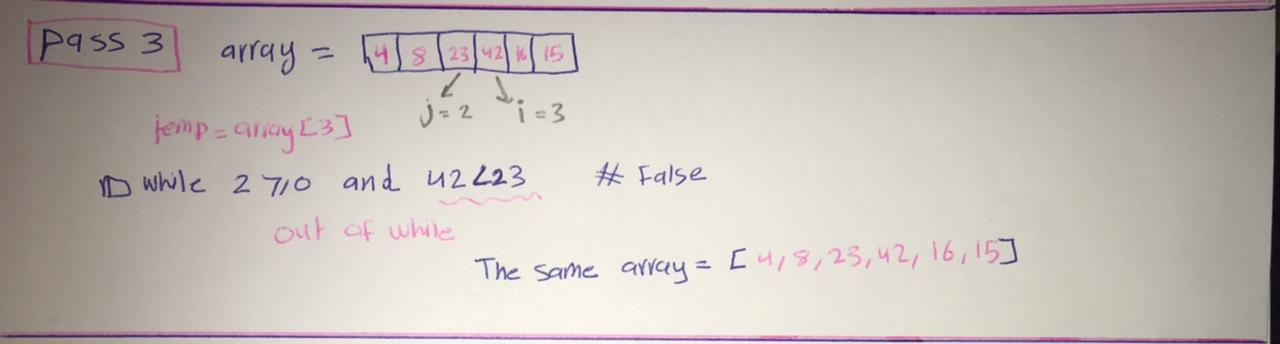 Pass 3 array = 4 8 23 42 16 15
j=2 i=3
temp=array[3]
1 while 2 >= 0 and 42<23 # False
out of while
The same array = [4,8,23,42,16,15]